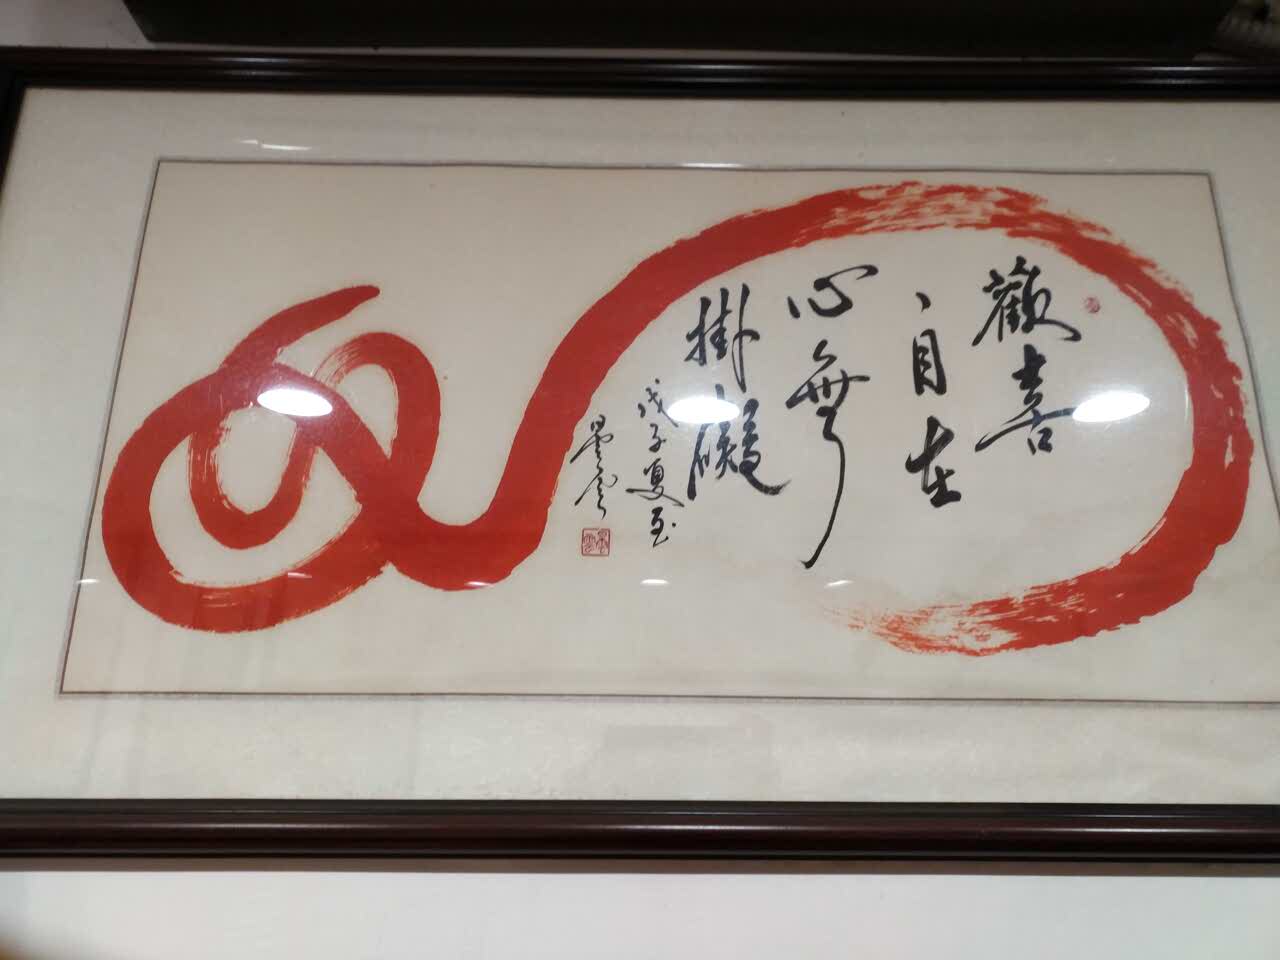 歡喜
自在
心無
掛礙
戊子夏至